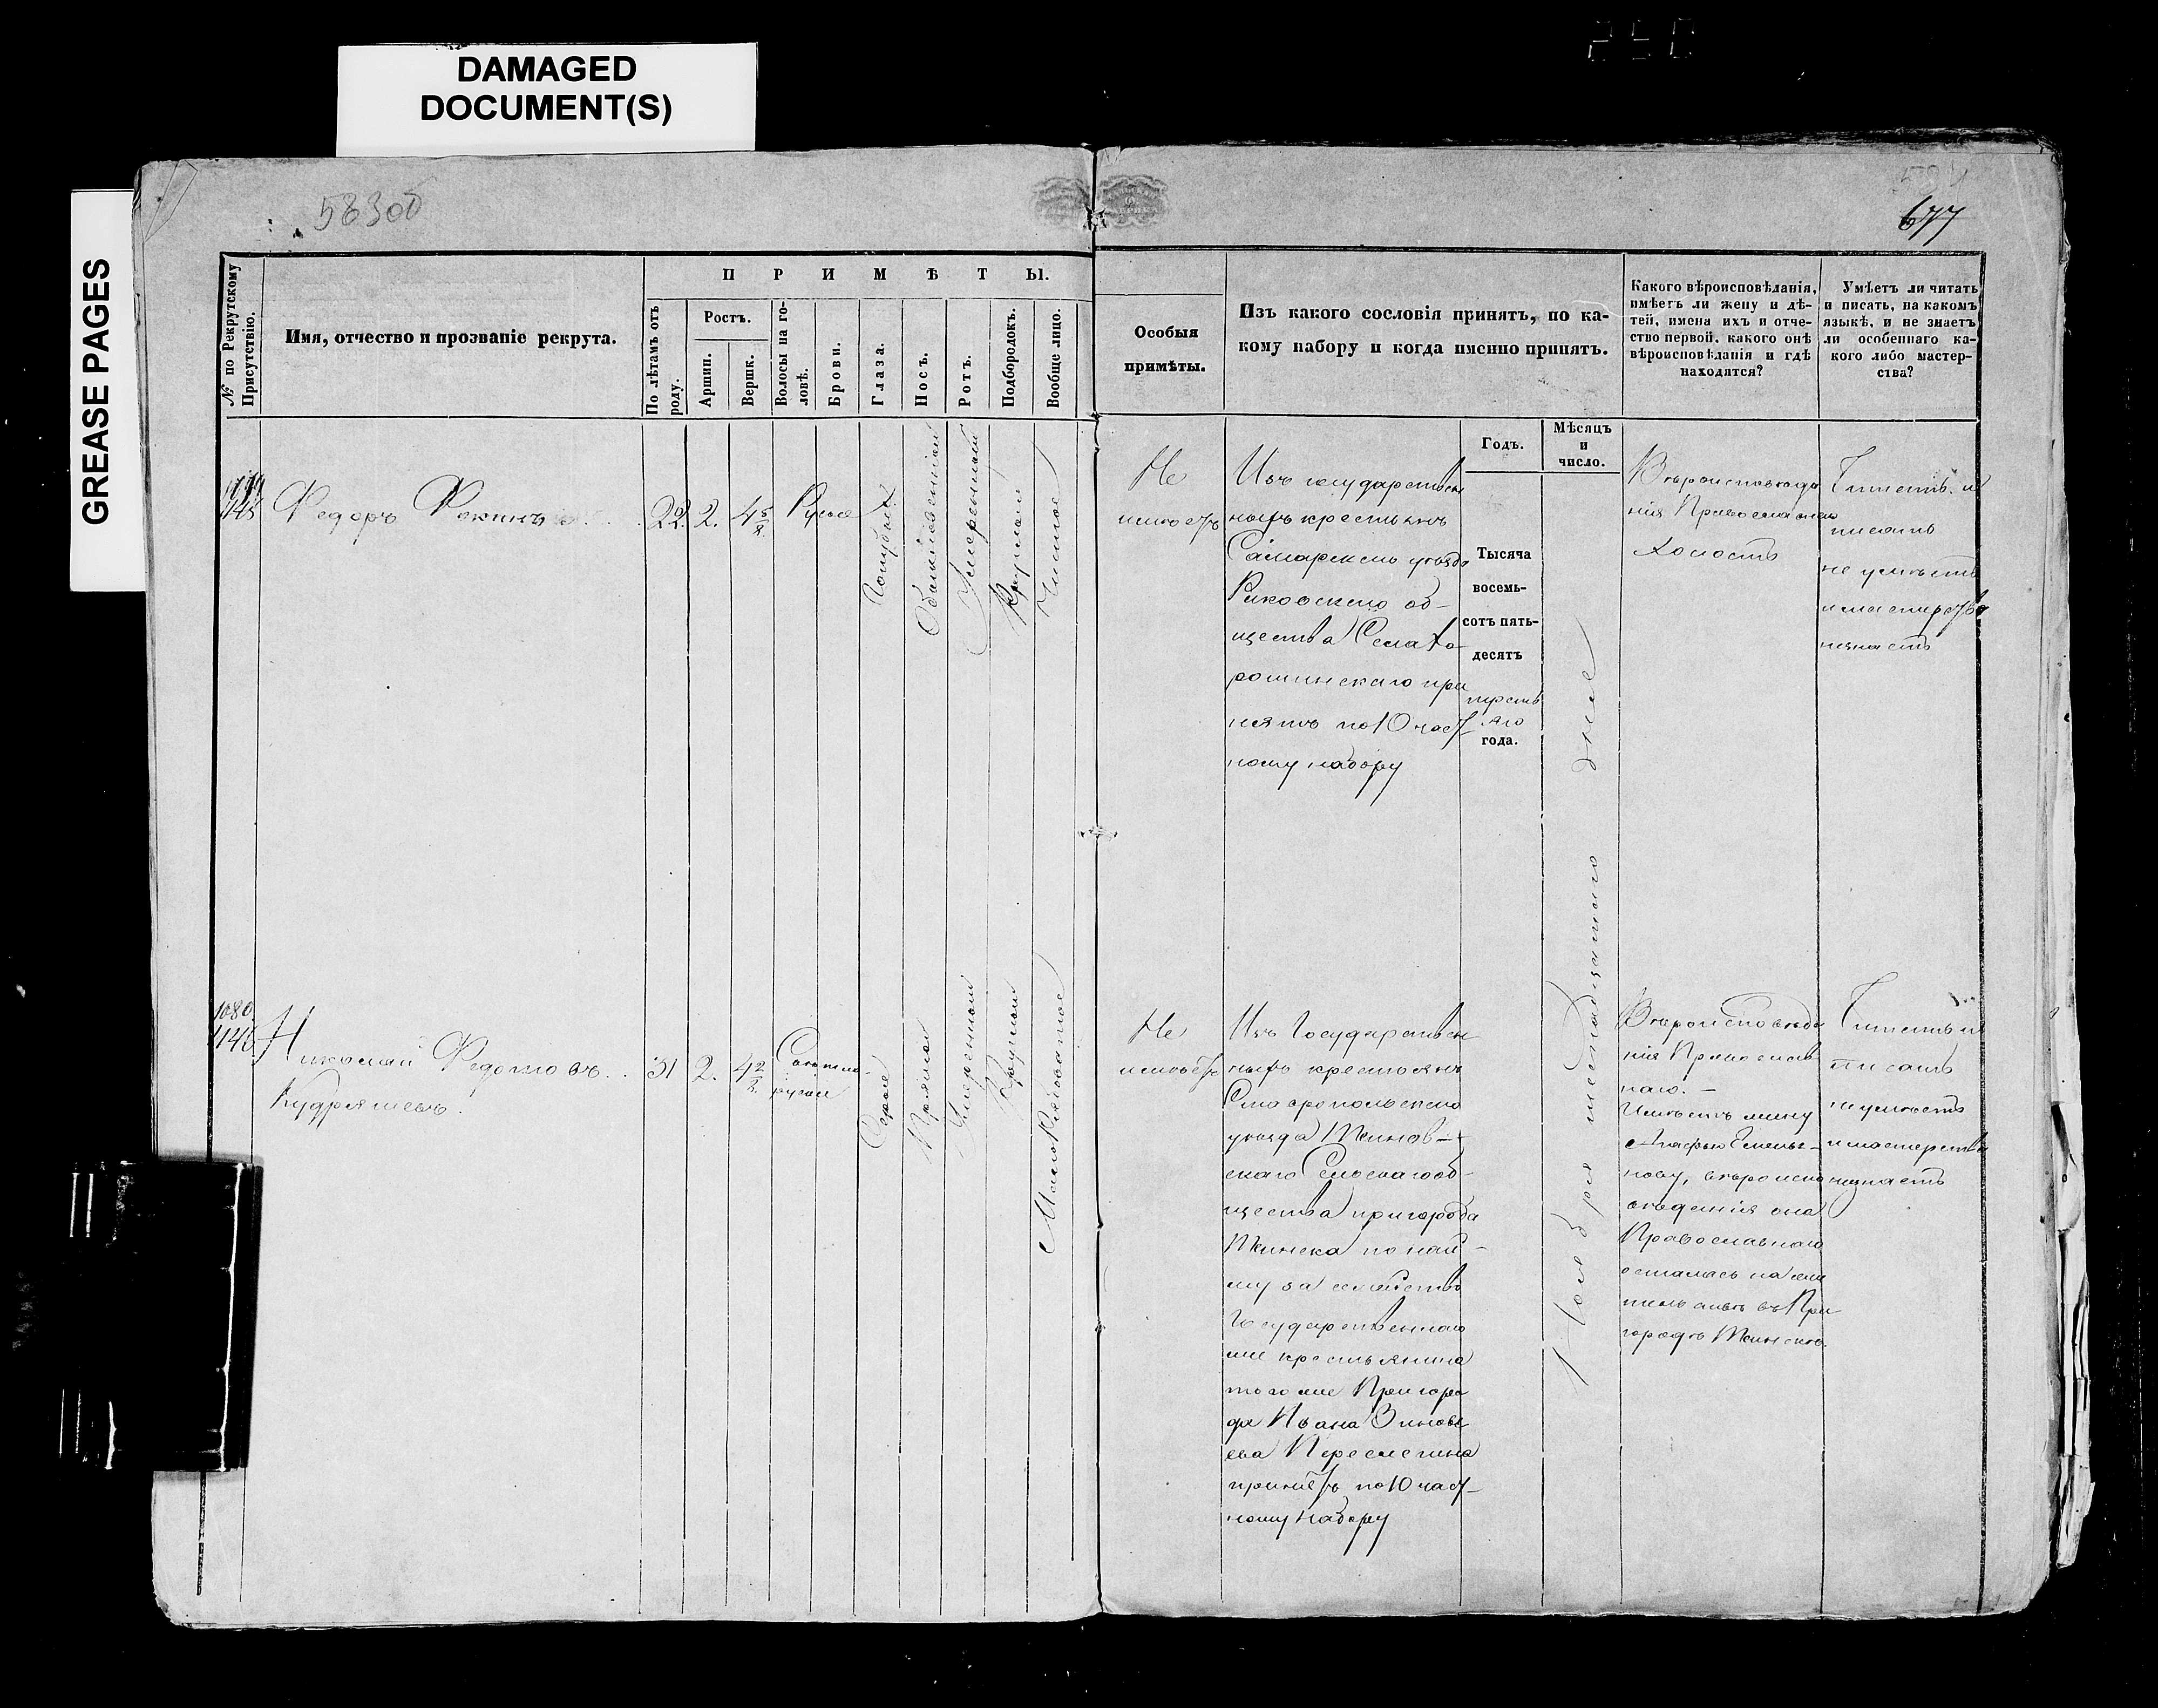 DAMAGED
DOCUMENT(S)
GREASE PAGES
250
58300
677
№ по Рекрутскому
Присутствію.
Имя, отчество и прозваніе рекрута.
ПРИМѢТЫ.
По лѣтамъ отъ
роду.
Ростъ.
Аршин.
Вершк.
Волосы на го-
ловѣ.
Брови.
Глаза.
Носъ.
Ротъ.
Подбородокъ.
Вообще лицо.
Особыя
примѣты.
Изъ какого сословія принятъ, по ка-
кому набору и когда именно принятъ.
Какого вѣроисповѣданія,
имѣетъ ли жену и дѣ-
тей, имена ихъ и отче-
ство первой, какого онѣ
вѣроисповѣданія и гдѣ
находятся?
Умѣетъ ли читать
и писать, на какомъ
языкѣ, и не знаетъ
ли особеннаго ка-
кого либо мастер-
ства?
Годъ.
Мѣсяцъ
и
число.
1145
Федоръ Фокинъ
2. 4 5/8
Русые
Голубые
Обыкновенный
Умеренный
Круглый
Чистое
Не
имѣетъ
Изъ государствен
ныхъ крестьянъ
Самарскаго уѣзда
общества Села Хо-
рошинскаго при
нятъ по 10 част
ному набору
Тысяча
восемь-
сотъ пять-
десятъ
третья
яго
года.
Ноября шестнадцатого дня
Вѣроисповѣда
нія Православнаго
холостъ
Читать и
писать
не умѣетъ
и мастерства
незнаетъ
1080
1146
Николай Федотовъ
Кудряшевъ.
31 2. 4 2/8
Свѣтло-
русые
Серые
Прямой
Умеренный
Круглый
Малорябоватое
Не
имѣетъ
Изъ Государствен
ныхъ крестьянъ
Ставропольскаго
уѣзда Тіинов-
скаго об-
щества пригорода
Тіинска по най-
му за семейство
Государственнаго
же крестьянина
того же Пригоро
да Ивана Зиновь
ева Переслегина
принятъ по 10 част
ному набору
Вѣроисповѣда
нія Православ
наго. —
Имѣетъ жену
Агафью Емелья-
нову, вѣроиспо
вѣданія она
Православнаго
осталась на жи
тельствѣ въ При
городѣ Тіинскѣ.
Читать и
писать
не умѣетъ
и мастерства
незнаетъ